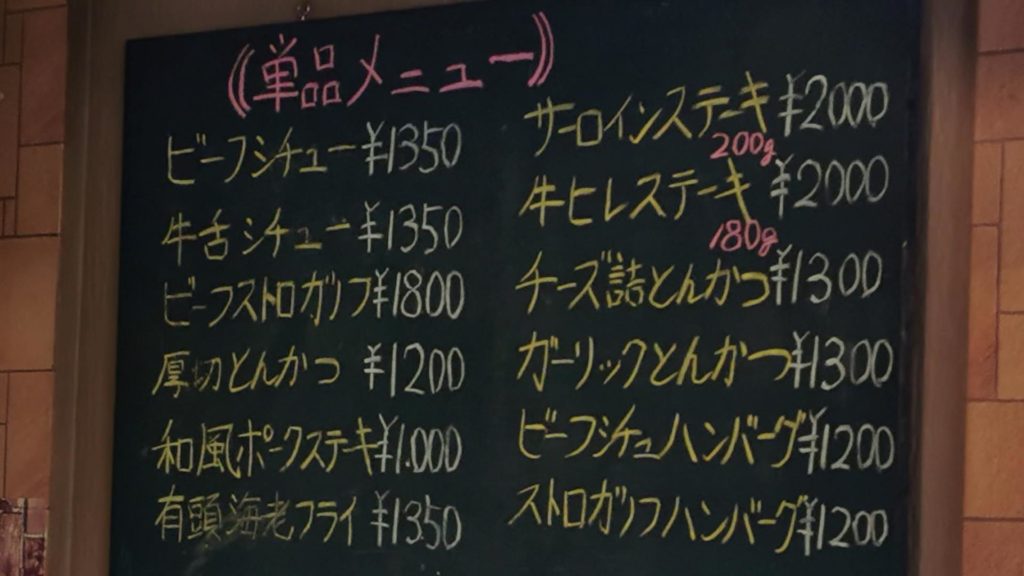 単品メニュー
ビーフシチュー ¥1350
牛舌シチュー ¥1350
ビーフストロガノフ ¥1800
厚切とんかつ ¥1200
和風ポークステキ ¥1.000
有頭海老フライ ¥1350
サーロインステーキ ¥2000
200g
牛ヒレステーキ ¥2000
180g
チーズ詰とんかつ ¥1300
ガーリックとんかつ ¥1300
ビーフシチュハンバーグ ¥1200
ストロガノフハンバーグ ¥1200